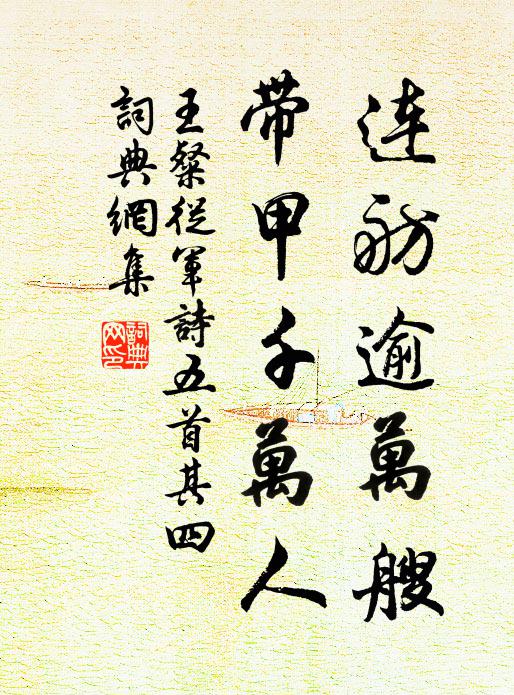 連舫逾萬艘
帶甲千萬人
王粲從軍詩五首其四
詞典網集
詞典
网印